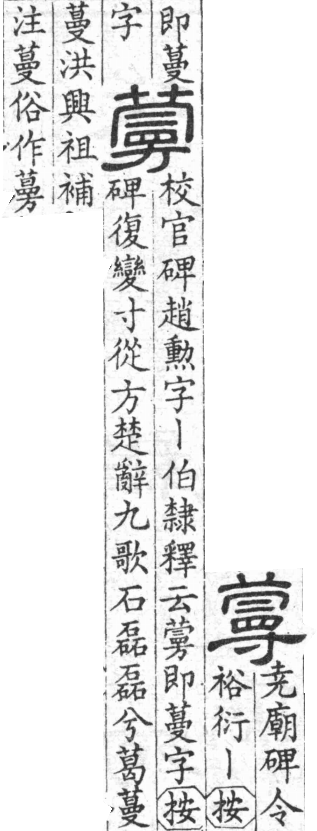 堯廟碑令
裕衍丨按
即蔓
字
校官碑趙勳字丨伯隸釋云即蔓字按
碑復變寸從方楚辭九歌石磊磊兮葛蔓
蔓洪興祖補
注蔓俗作